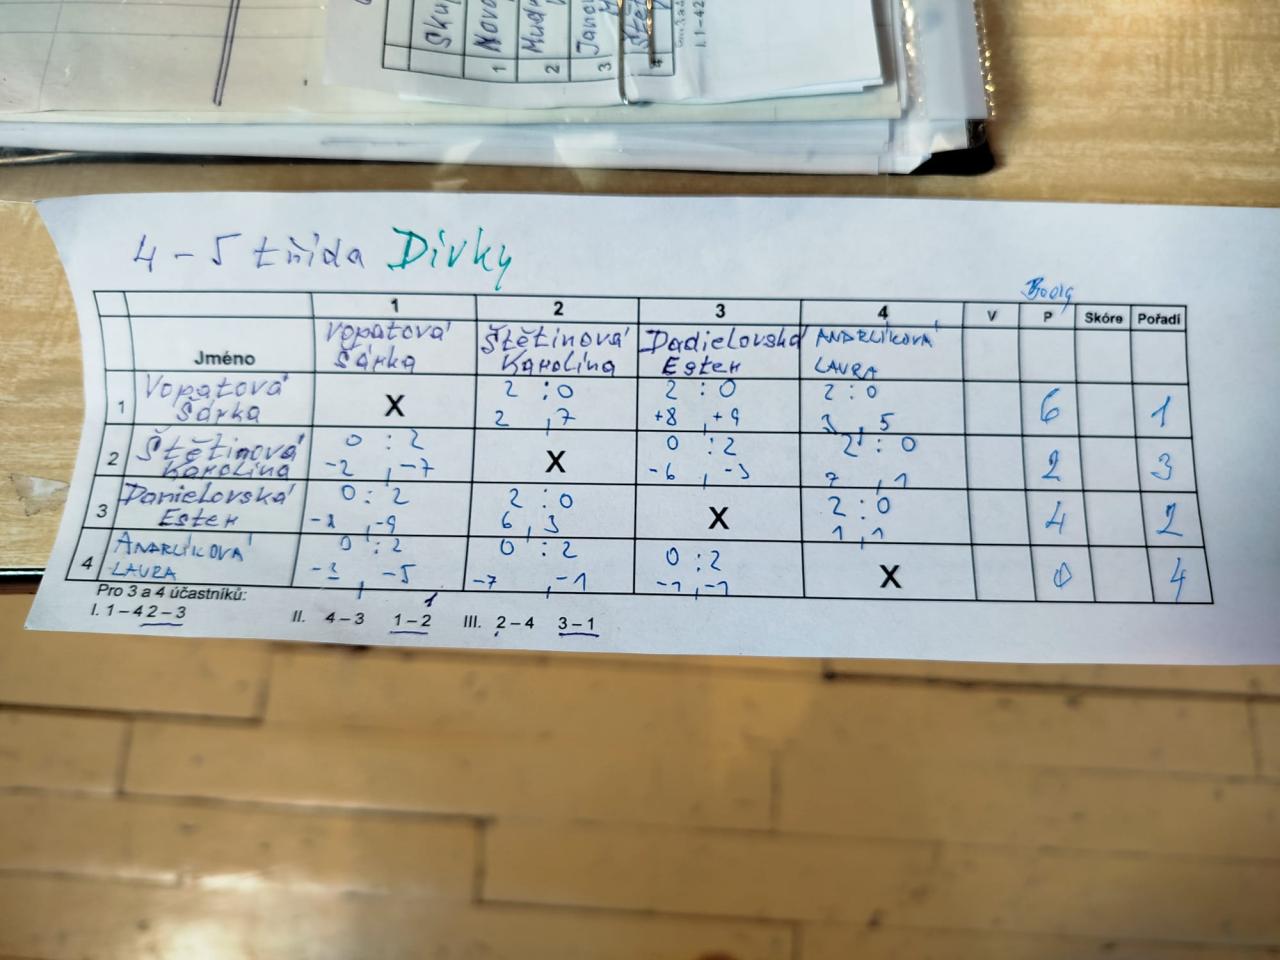 Sku
1 Nova
2 Mudr
3 Jano
4 Ště
I. 1-42
4 - 5 třída Dívky
Body
1 2 3 4 V P Skóre Pořadí
Jméno Vopatová Šárka Štětinová Karolína Dadielovská Ester ANDRLÍKOVÁ LAURA
1 Vopatová Šárka X 2 : 0 2 : 0 2 : 0 6 1
2 , 7 +8 , +9 3 , 5
2 Štětinová Karolína 0 : 2 X 0 : 2 2 : 0 2 3
-2 , -7 -6 , -3 7 , 1
3 Danielovská Ester 0 : 2 2 : 0 X 2 : 0 4 2
-8 , -9 6 , 3 1 , 1
4 ANDRLÍKOVÁ LAURA 0 : 2 0 : 2 0 : 2 X 0 4
-3 , -5 -7 , -1 -1 , -1
Pro 3 a 4 účastníků:
I. 1 – 4 2 – 3 II. 4 – 3 1 – 2 III. 2 – 4 3 – 1